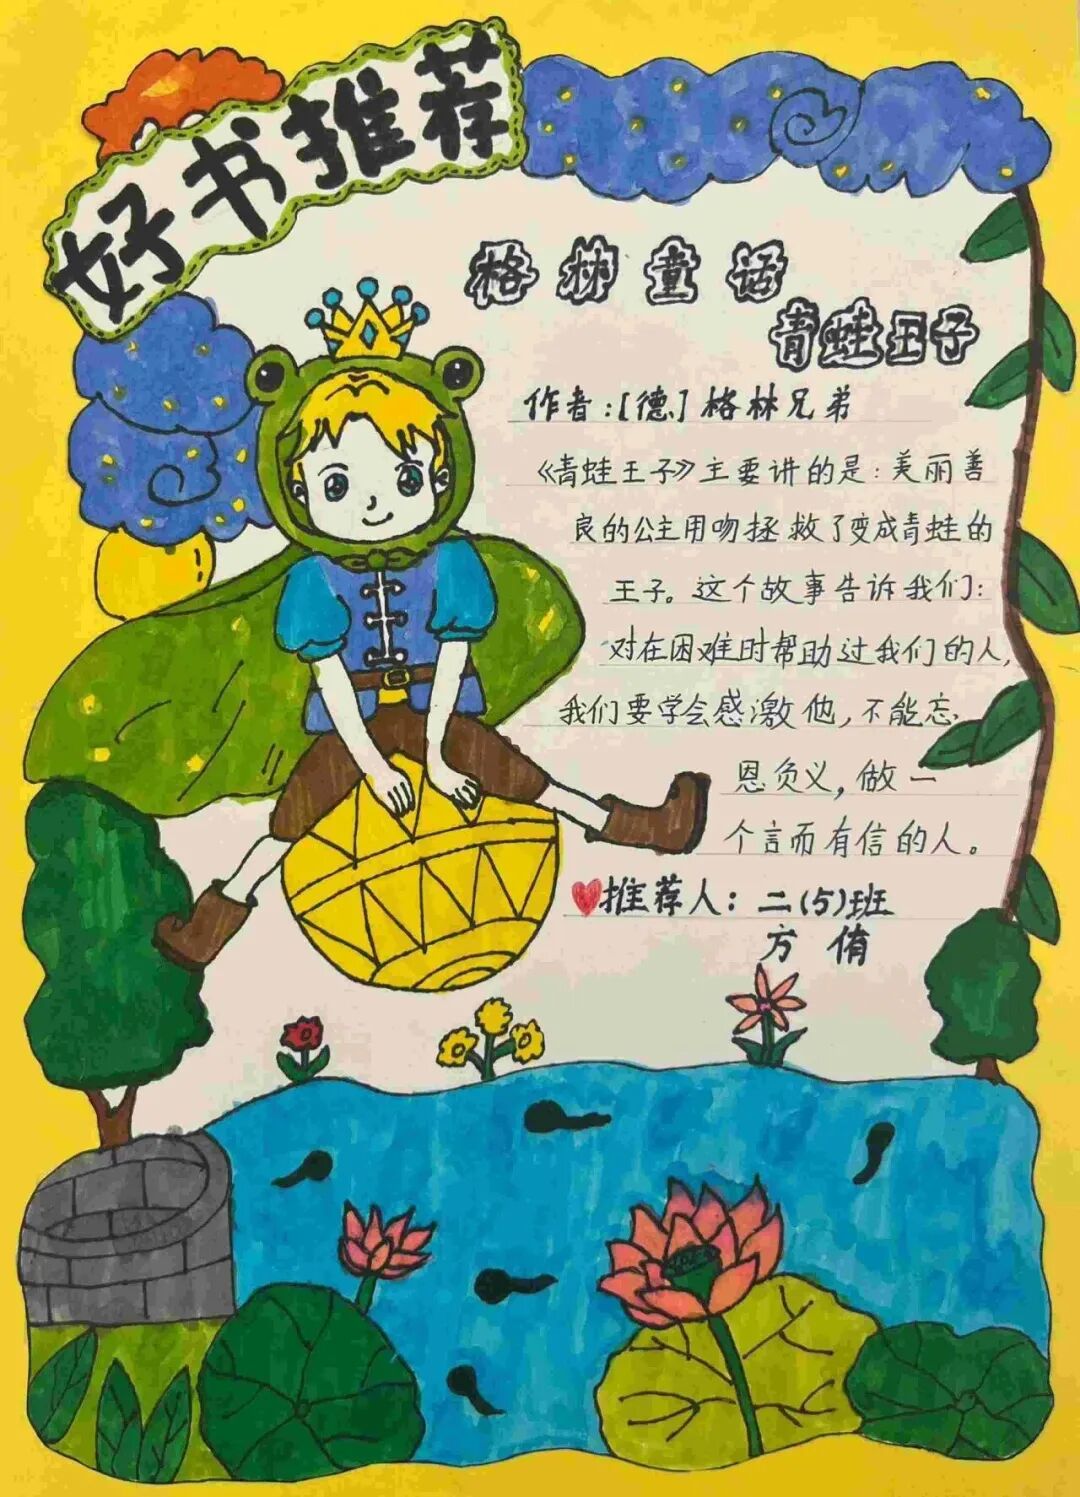 好书推荐
格林童话
青蛙王子
作者:[德]格林兄弟
《青蛙王子》主要讲的是:美丽善
良的公主用吻拯救了变成青蛙的
王子。这个故事告诉我们:
对在困难时帮助过我们的人,
我们要学会感激他,不能忘
恩负义,做一
个言而有信的人。
推荐人:二(5)班
方侑